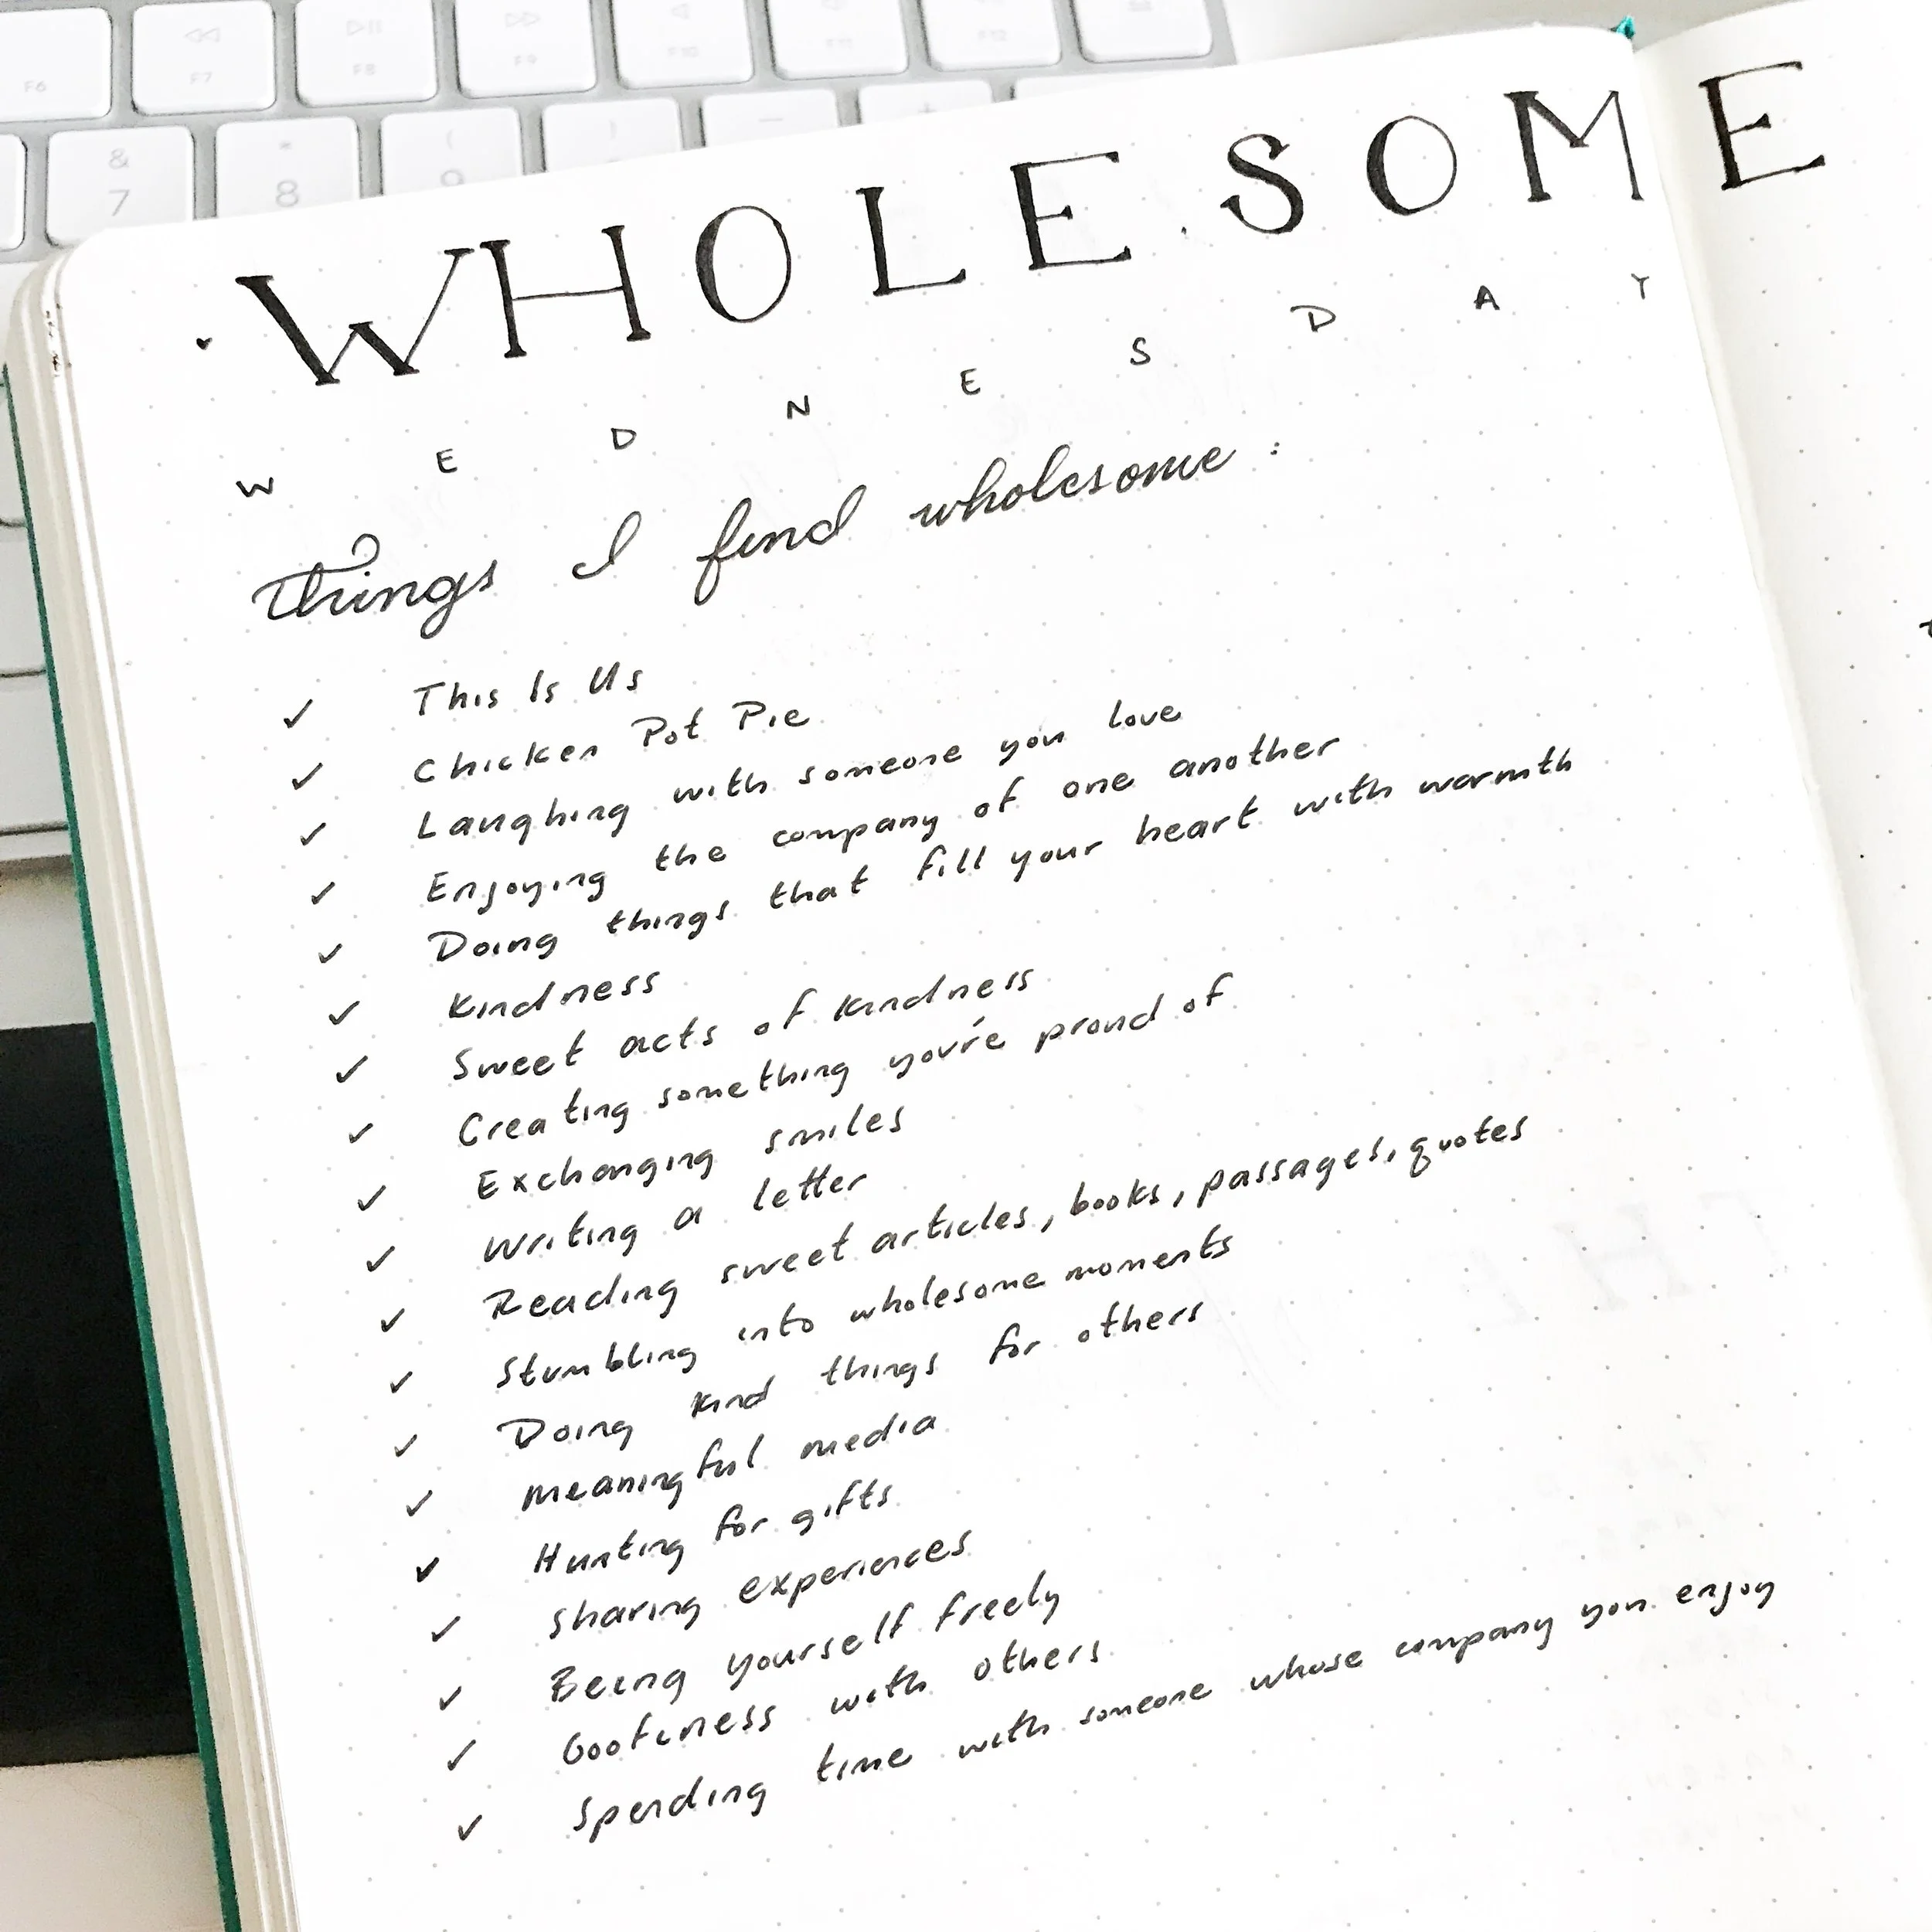 F6 F7 F8 F9 F10 F11 F12
& * ( ) — +
7 8 9
WHOLESOME
WEDNESDAY
Things I find wholesome:
✓ This Is Us
✓ Chicken Pot Pie
✓ Laughing with someone you love
✓ Enjoying the company of one another
✓ Doing things that fill your heart with warmth
✓ Kindness
✓ Sweet acts of kindness
✓ Creating something you're proud of
✓ Exchanging smiles
✓ Writing a letter
✓ Reading sweet articles, books, passages, quotes
✓ Stumbling into wholesome moments
✓ Doing kind things for others
✓ Meaningful media
✓ Hunting for gifts
✓ Sharing experiences
✓ Being yourself freely
✓ Goofiness with others
✓ Spending time with someone whose company you enjoy